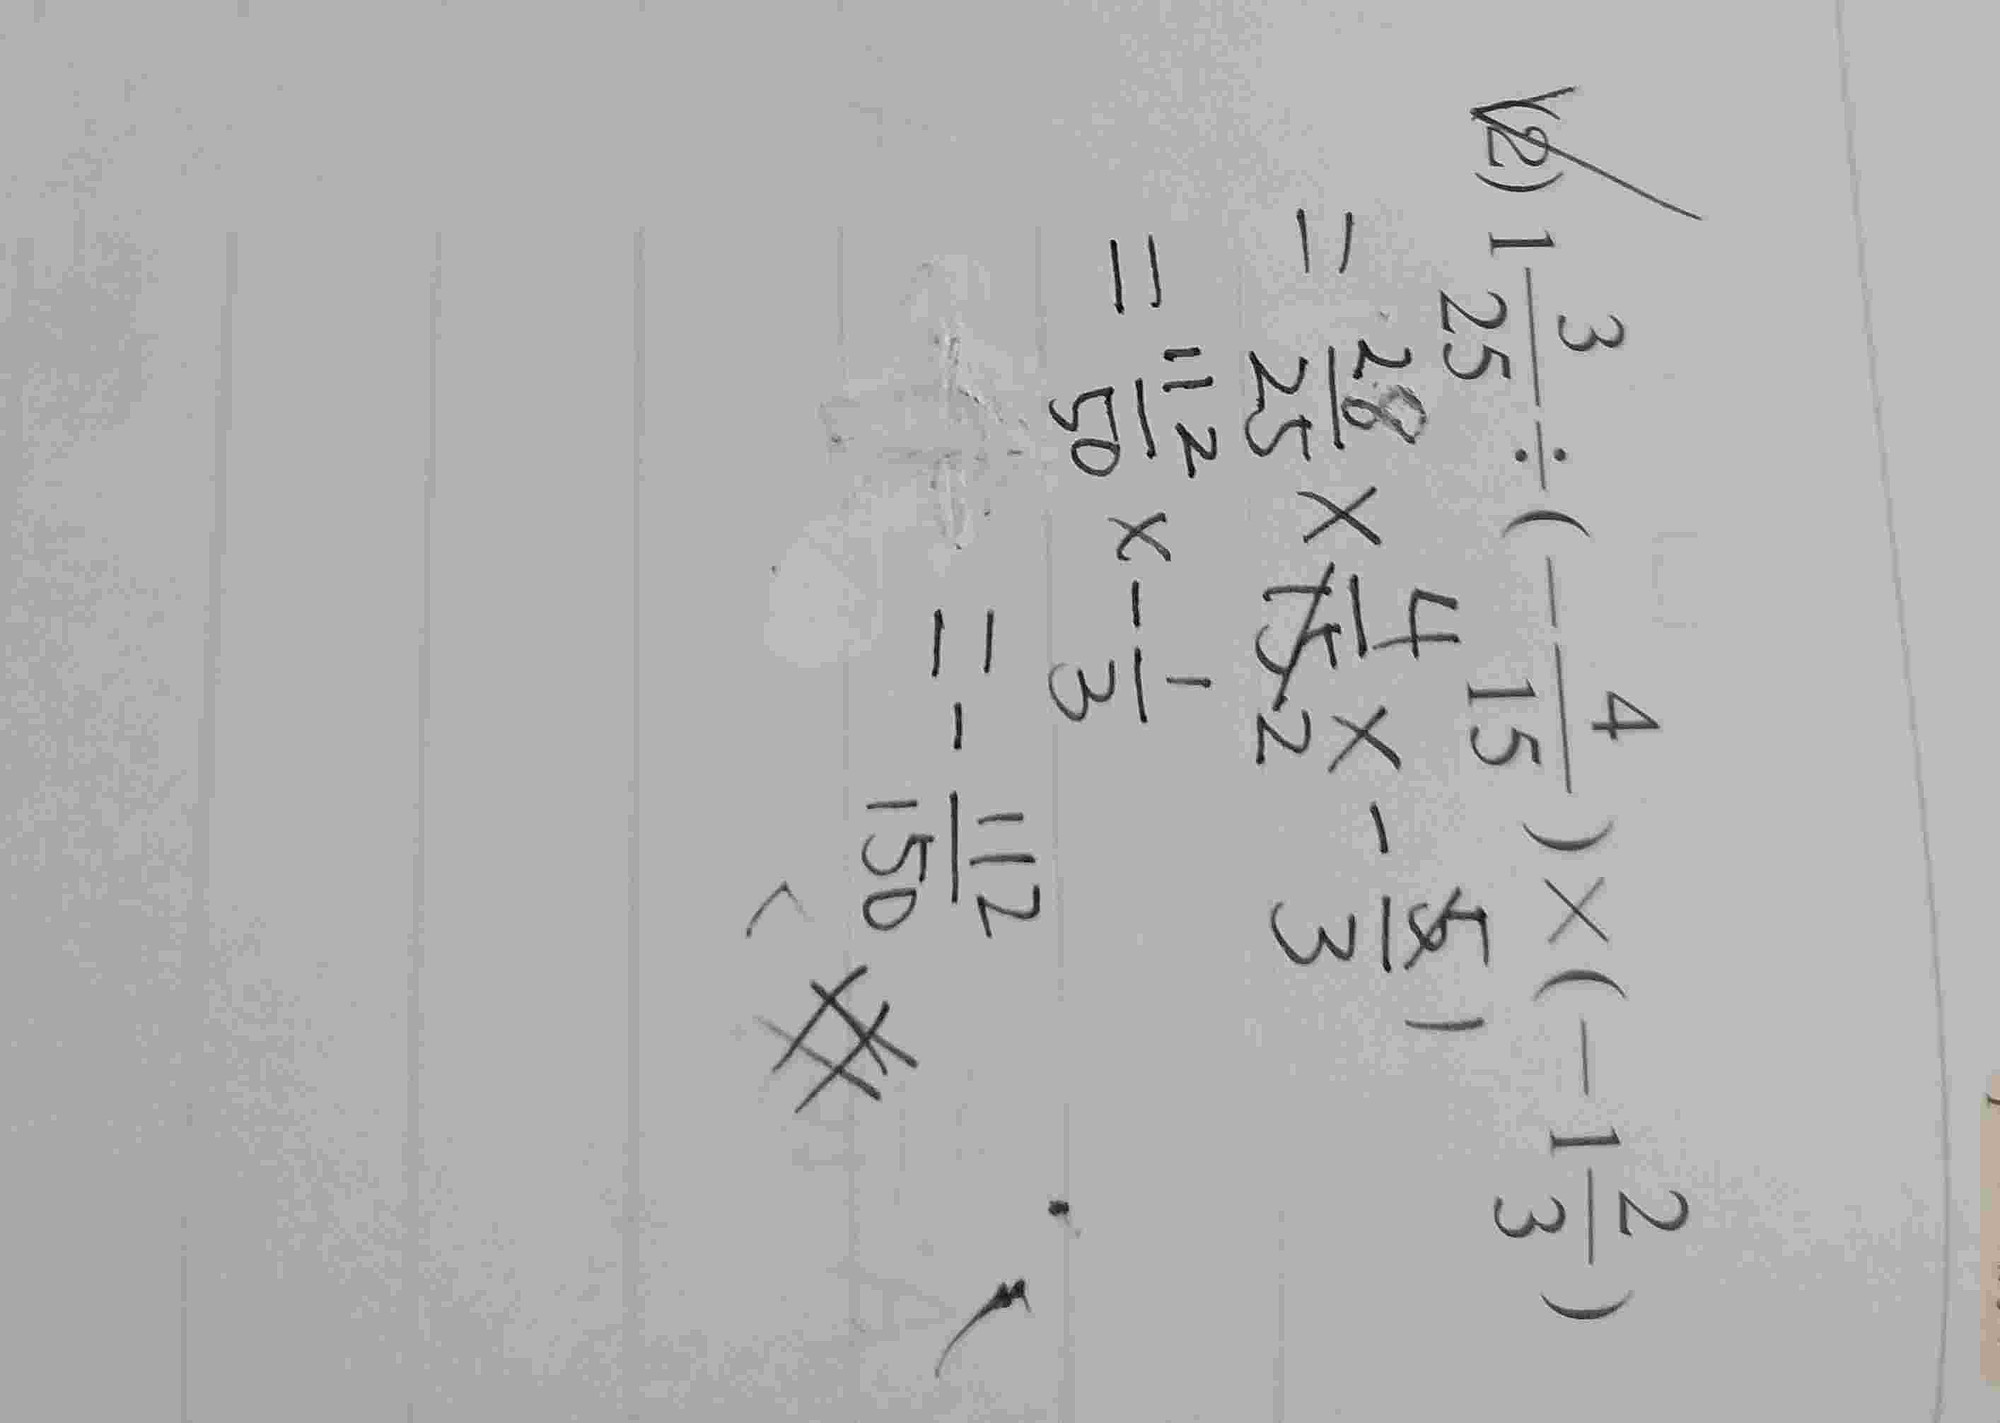 (2) 1 3/25 ÷ (− 4/15) × (−1 2/3)
= 28/25 × 4/15 2 × − 5/3 1
= 112/50 × − 1/3
= − 112/150